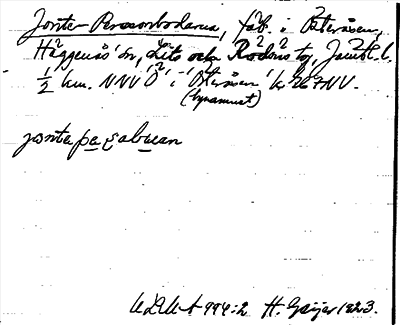 Jonte-Perssonbodarna, fäb. i Österåsen,
Häggenås sn, Lits och Rödöns tg, Jämtl. l.
½ km. NNV Ö i "Österåsen" k 267 NV.
(bynamnet)
jontepesabuan
ULMA 994:2 H. Geijer 1923.